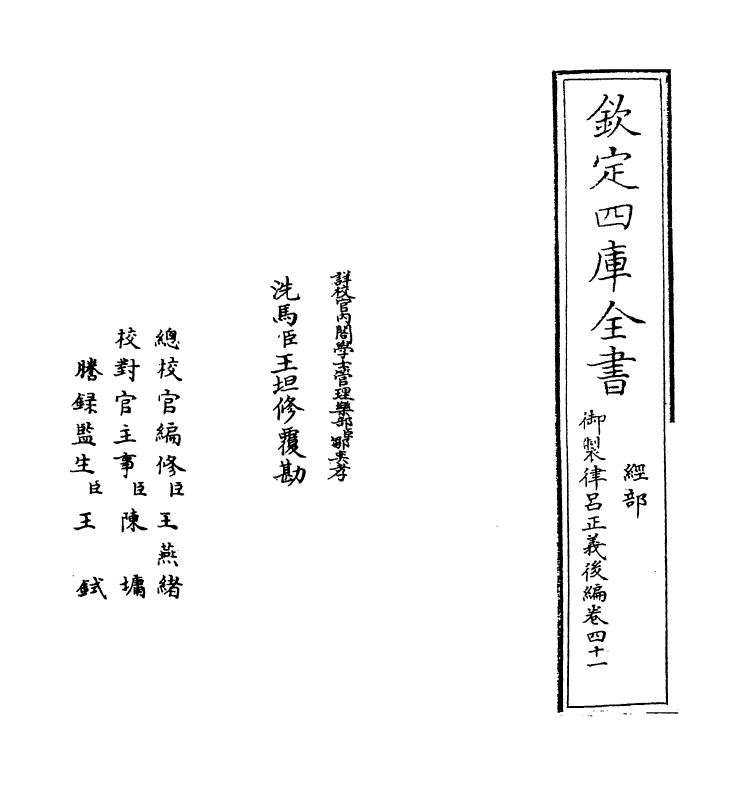 欽定四庫全書
經部
御製律呂正義後編卷四十一
詳校官内閣學士管理樂部臣鄒奕孝
洗馬臣王坦修覆勘
總校官編修臣王燕緒
校對官主事臣陳墉
謄錄監生臣王鉽